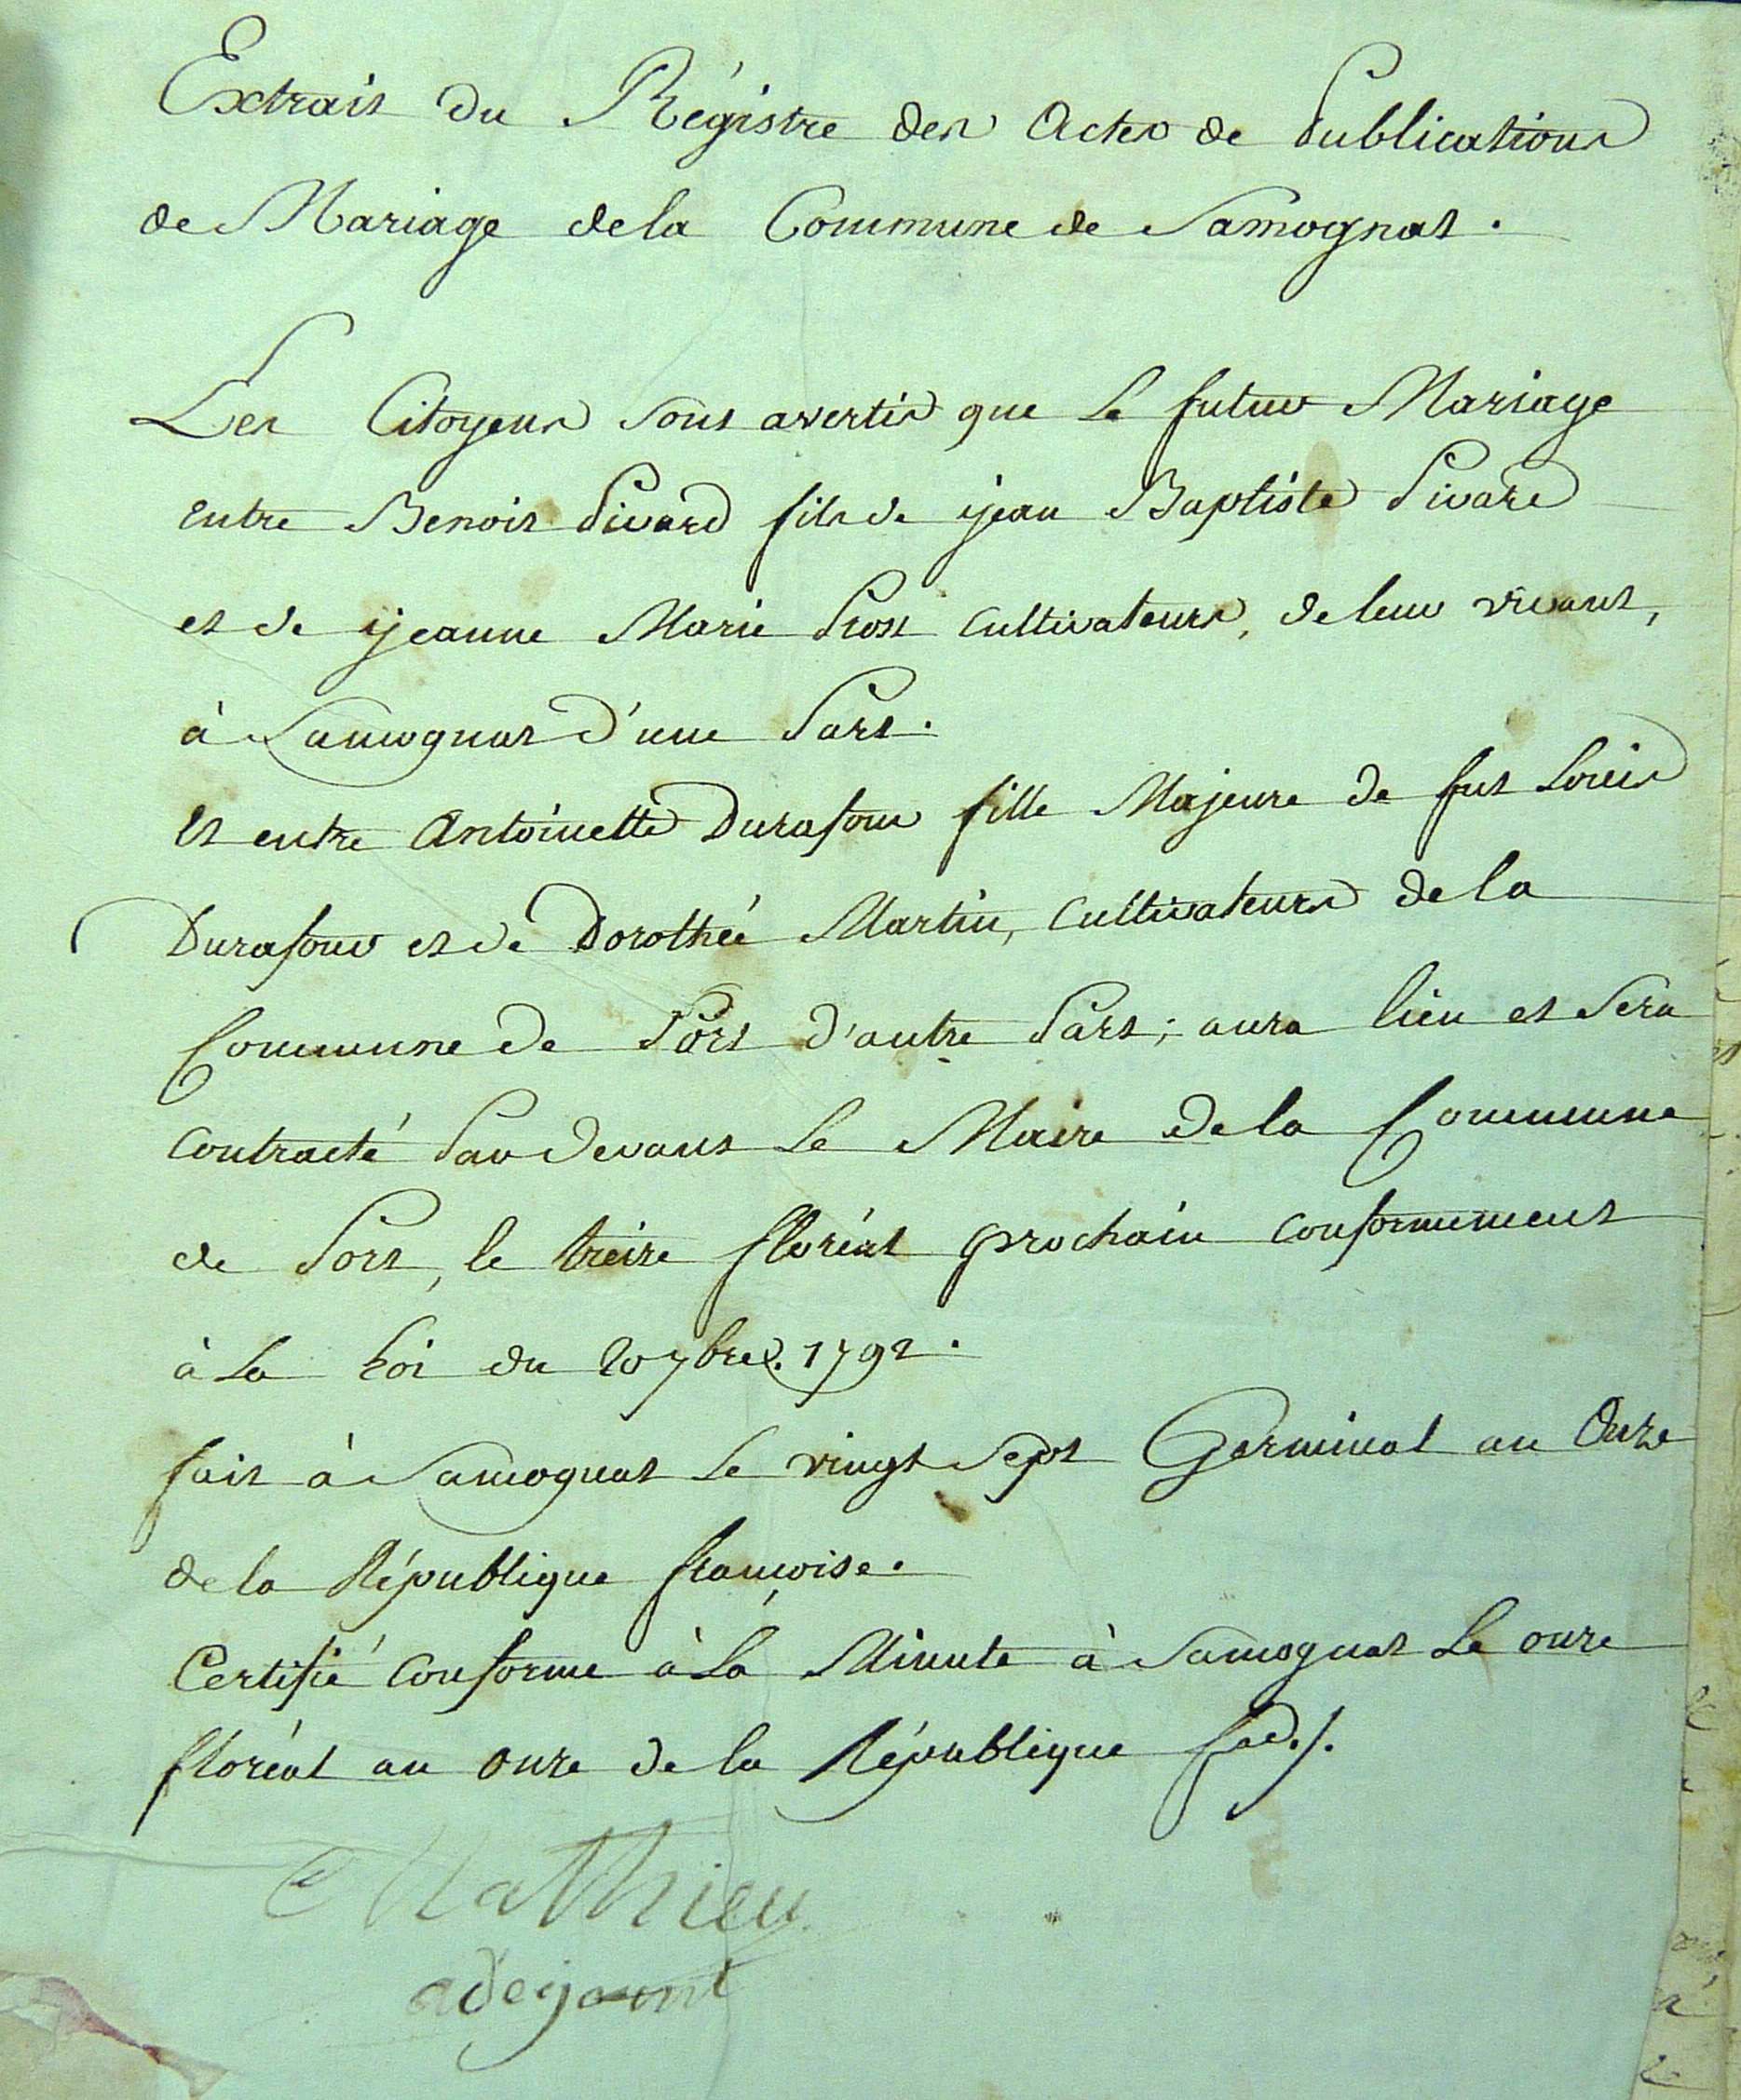 Extrait du Régistre des Actes de Publications
de Mariage de la Commune de Samognat.
Les Citoyens sont avertis que le futur Mariage
entre Benoit Pivard fils de jean Baptiste Pivard
et de jeanne Marie cultivateurs, de leur vivant,
à Samognat d'une Part.
Et entre Antoinette Durafour fille Majeure de fut Louis
Durafour et de Dorothée Martin, cultivateurs de la
Commune de Port d'autre Part; aura lieu et sera
contracté Par devant le Maire de la Commune
de Port, le treize floréal prochain conformement
à la Loi du 20 7bre. 1792.
fait à Samognat le vingt sept Germinal an Onze
de la République françoise.
Certifié conforme à la Minute à Samognat le onze
floréal an onze de la République
Mathieu